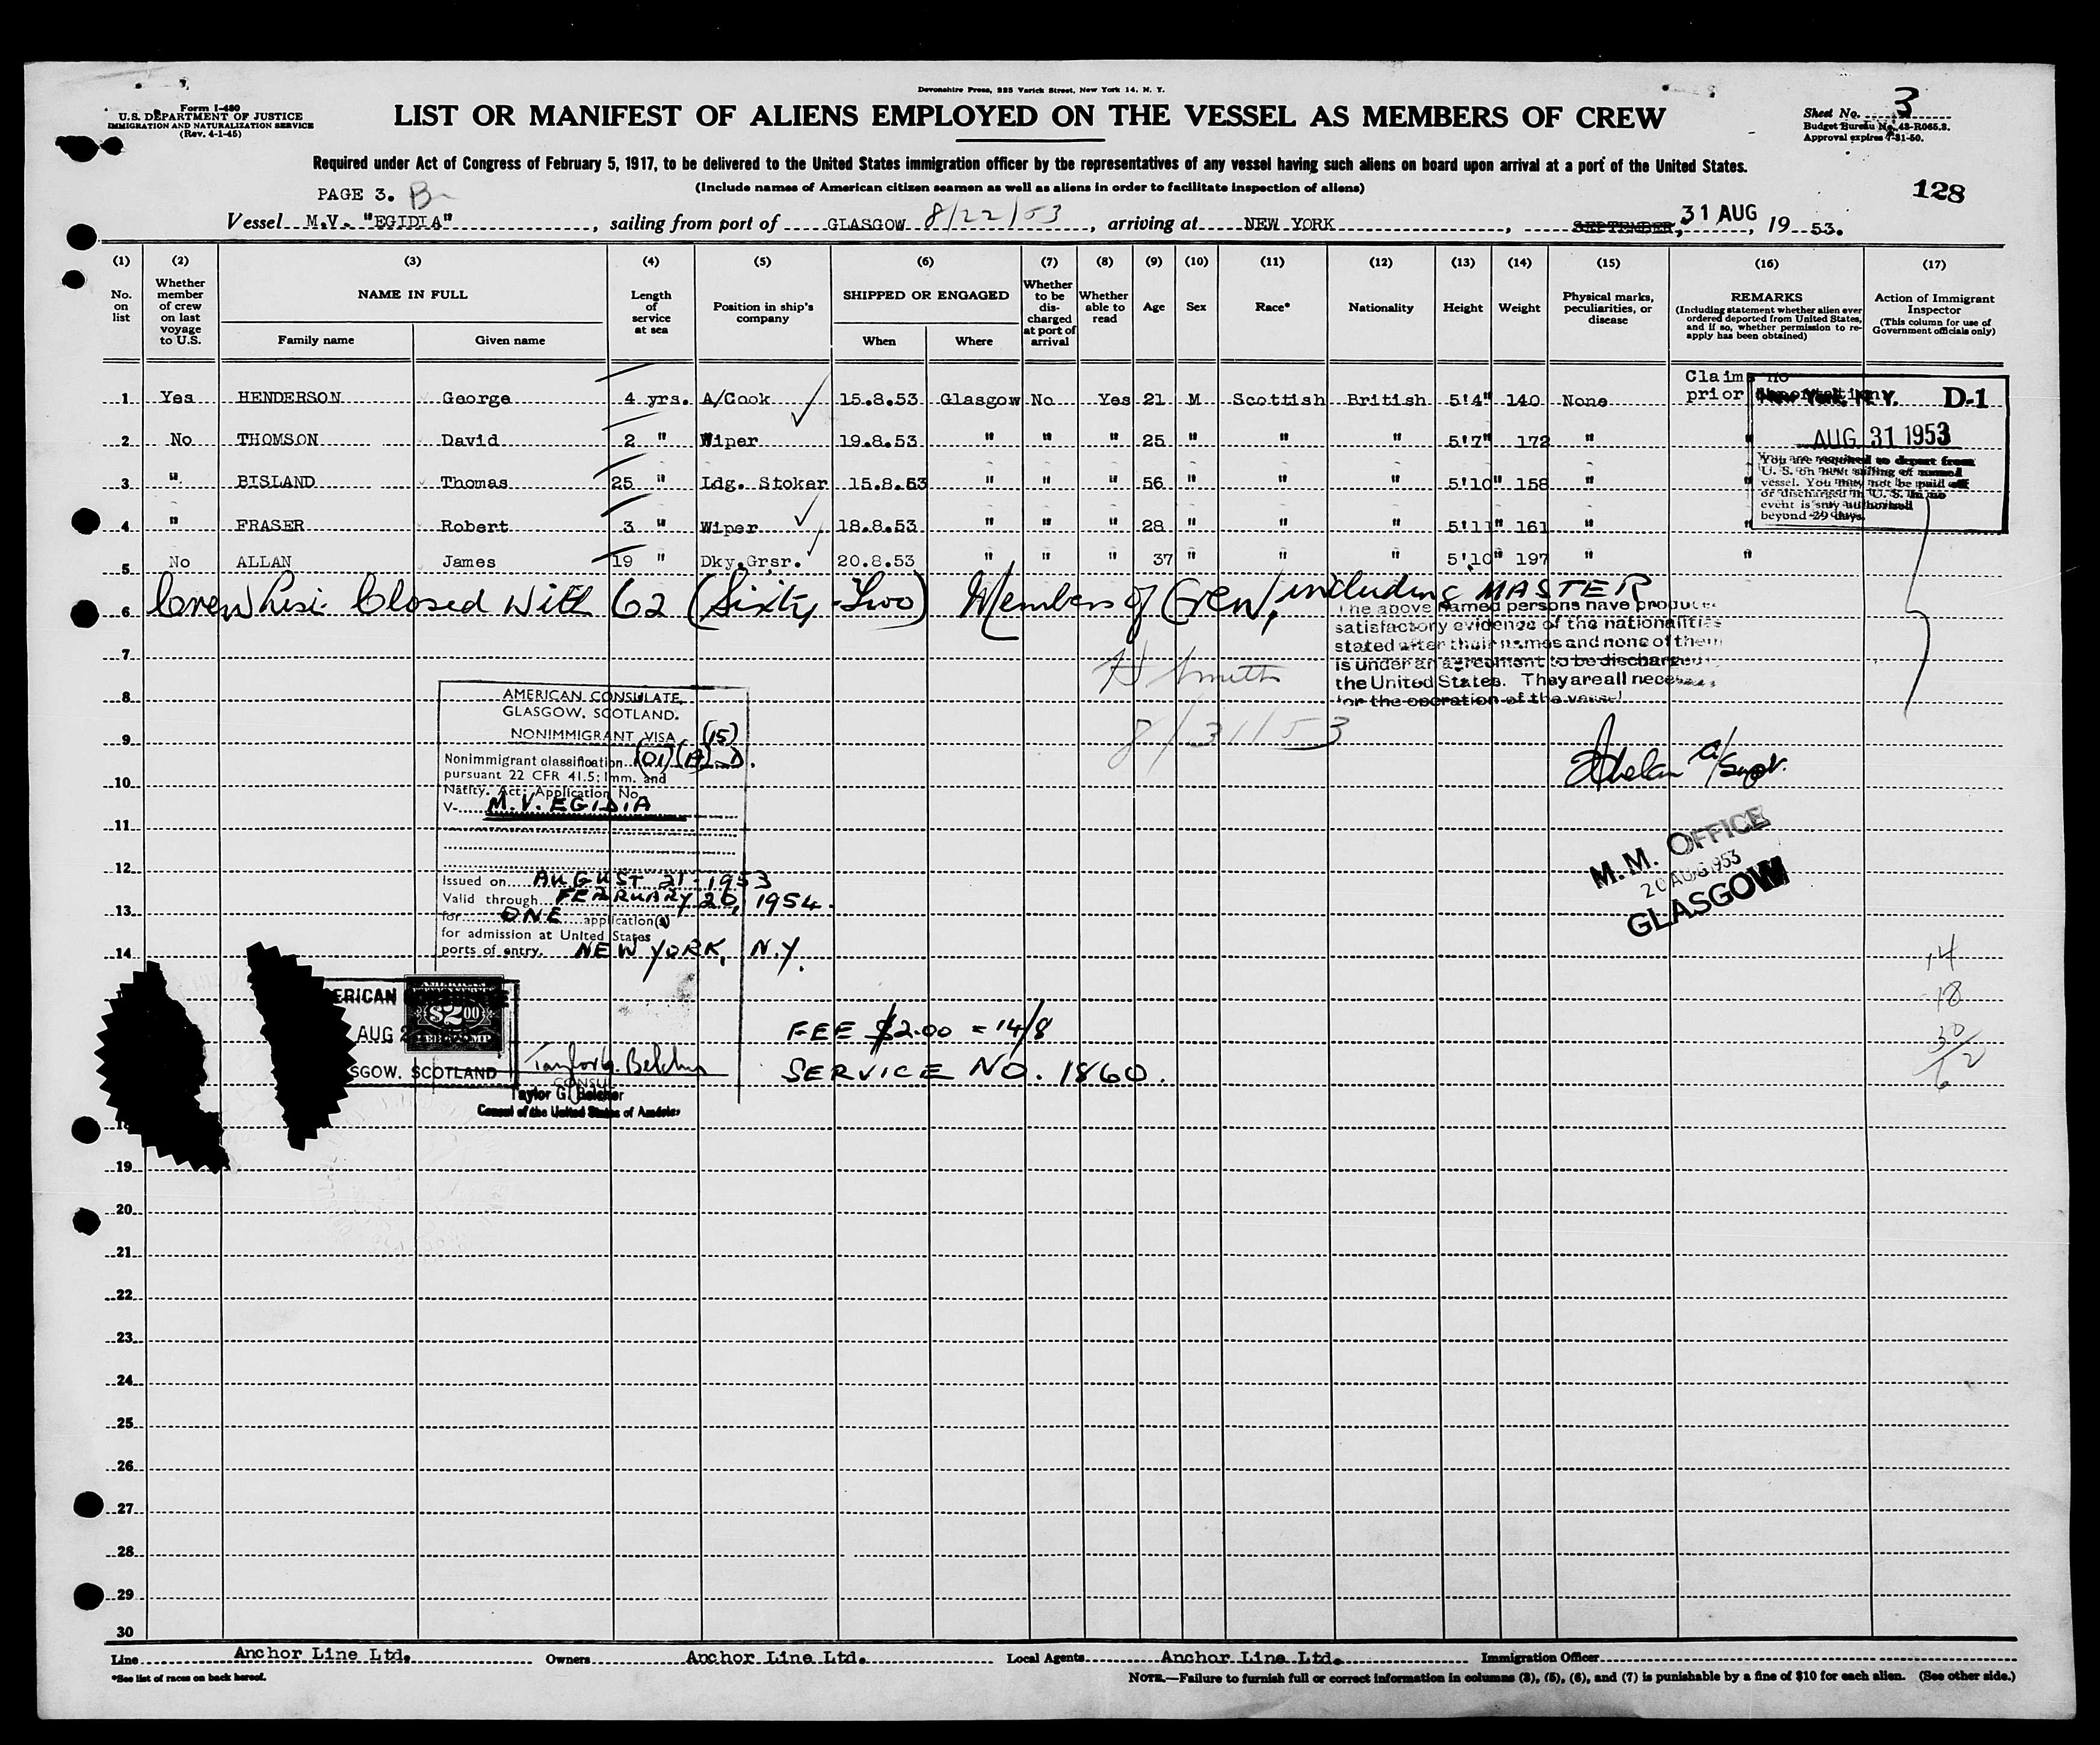 Devonshire Press, 225 Varick Street, New York 14, N. Y.
Form I-480
U.S. DEPARTMENT OF JUSTICE
IMMIGRATION AND NATURALIZATION SERVICE
(Rev. 4-1-45)
LIST OR MANIFEST OF ALIENS EMPLOYED ON THE VESSEL AS MEMBERS OF CREW
Sheet No. 3
Budget Bureau No. 43-R065.3.
Approval expires 7-31-50.
Required under Act of Congress of February 5, 1917, to be delivered to the United States immigration officer by the representatives of any vessel having such aliens on board upon arrival at a port of the United States.
(Include names of American citizen seamen as well as aliens in order to facilitate inspection of aliens)
PAGE 3. B
128
Vessel M.V. "EGIDIA", sailing from port of GLASGOW 8/22/53, arriving at NEW YORK, SEPTEMBER, 31 AUG, 19 53.
(1) (2) (3) (4) (5) (6) (7) (8) (9) (10) (11) (12) (13) (14) (15) (16) (17)
No. on list
Whether member of crew on last voyage to U.S.
NAME IN FULL
Family name
Given name
Length of service at sea
Position in ship's company
SHIPPED OR ENGAGED
When
Where
Whether to be discharged at port of arrival
Whether able to read
Age
Sex
Race*
Nationality
Height
Weight
Physical marks, peculiarities, or disease
REMARKS
(Including statement whether alien ever ordered deported from United States, and if so, whether permission to reapply has been obtained)
Action of Immigrant Inspector
(This column for use of Government officials only)
1 Yes HENDERSON George 4 yrs. A/Cook 15.8.53 Glasgow No Yes 21 M Scottish British 5'4" 140 None Claims no prior deportation
2 No THOMSON David 2 " Wiper 19.8.53 " " " 25 " " " 5'7" 172 " "
3 " BISLAND Thomas 25 " Ldg. Stoker 15.8.53 " " " 56 " " " 5'10" 158 " "
4 " FRASER Robert 3 " Wiper 18.8.53 " " " 28 " " " 5'11" 161 " "
5 No ALLAN James 19 " Dky.Grsr. 20.8.53 " " " 37 " " " 5'10" 197 " "
New York, N. Y. D-1
AUG 31 1953
You are required to depart from
U. S. on next sailing of named
vessel. You may not be paid off
or discharged in U. S. In no
event is stay authorized
beyond 29 days.
6 Crew List Closed with 62 (Sixty-Two) Members of Crew, including MASTER
The above named persons have produced
satisfactory evidence of the nationalities
stated after their names and none of them
is under an agreement to be discharged
the United States. They are all necessary
for the operation of the vessel
7
H Smith
8/31/53
8
AMERICAN CONSULATE,
GLASGOW, SCOTLAND.
NONIMMIGRANT VISA
(15)
Nonimmigrant classification (101)(A) D.
pursuant 22 CFR 41.5; Imm. and
Natity. Act; Application No.
V- M.V. EGIDIA
9
10
11
12
13
14
Issued on AUGUST 21-1953
Valid through FEBRUARY 20, 1954.
for ONE application(s)
for admission at United States
ports of entry. NEW YORK, N.Y.
a/Supt.
M. M. OFFICE
20 AUG 1953
GLASGOW
14
18
30
2
6
ERICAN
$2.00
AUG 2
SGOW, SCOTLAND
Taylor G. Belcher
CONSUL
Taylor G. Belcher
Consul of the United States of America
FEE $2.00 = 14/8
SERVICE NO. 1860.
19
20
21
22
23
24
25
26
27
28
29
30
Line Anchor Line Ltd. Owners Anchor Line Ltd. Local Agents Anchor Line Ltd. Immigration Officer
*See list of races on back hereof.
NOTE.—Failure to furnish full or correct information in columns (3), (5), (6), and (7) is punishable by a fine of $10 for each alien. (See other side.)